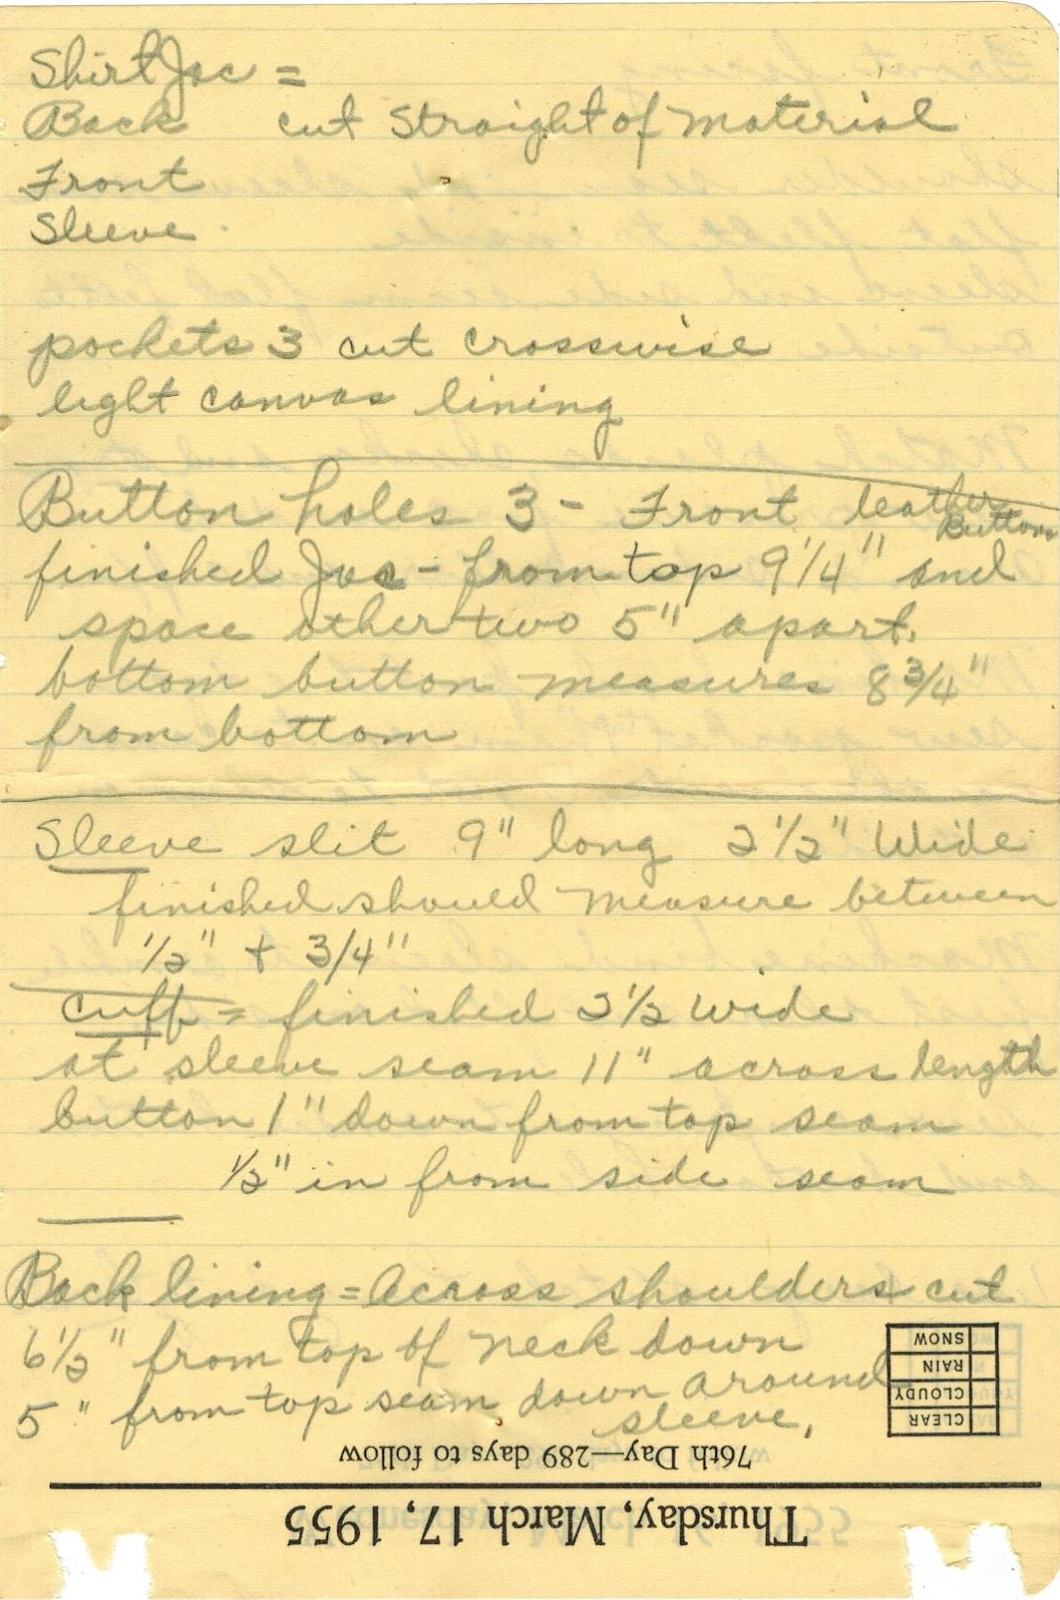 Shirt Jac =
Back cut straight of material
Front
Sleeve
pockets 3 cut crosswise
light canvas lining
Button holes 3 - Front leather Buttons
finished Jac - from top 9 1/4" and
space other two 5" apart.
bottom button measures 8 3/4"
from bottom
Sleeve slit 9" long 2 1/2" Wide
finished should measure between
1/2" + 3/4"
cuff = finished 2 1/2 wide
at sleeve seam 11" across length
button 1" down from top seam
1/2" in from side seam
Back lining = Across shoulders cut
6 1/2" from top of neck down
5" from top seam down around
sleeve.
SNOW
RAIN
CLOUDY
CLEAR
76th Day—289 days to follow
Thursday, March 17, 1955